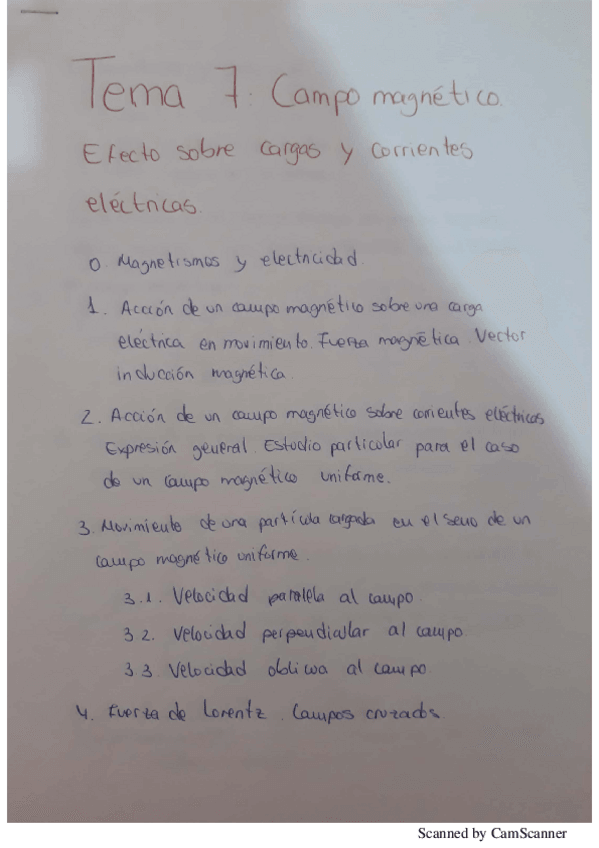 Tema 7: Campo magnético.
Efecto sobre cargas y corrientes
eléctricas.
0. Magnetismos y electricidad.
1. Acción de un campo magnético sobre una carga
eléctrica en movimiento. Fuerza magnética. Vector
inducción magnética.
2. Acción de un campo magnético sobre corrientes eléctricas
Expresión general. Estudio particular para el caso
de un campo magnético uniforme.
3. Movimiento de una partícula cargada en el seno de un
campo magnético uniforme.
3.1. Velocidad paralela al campo.
3.2. Velocidad perpendicular al campo.
3.3. Velocidad oblicua al campo.
4. Fuerza de Lorentz. Campos cruzados.
Scanned by CamScanner